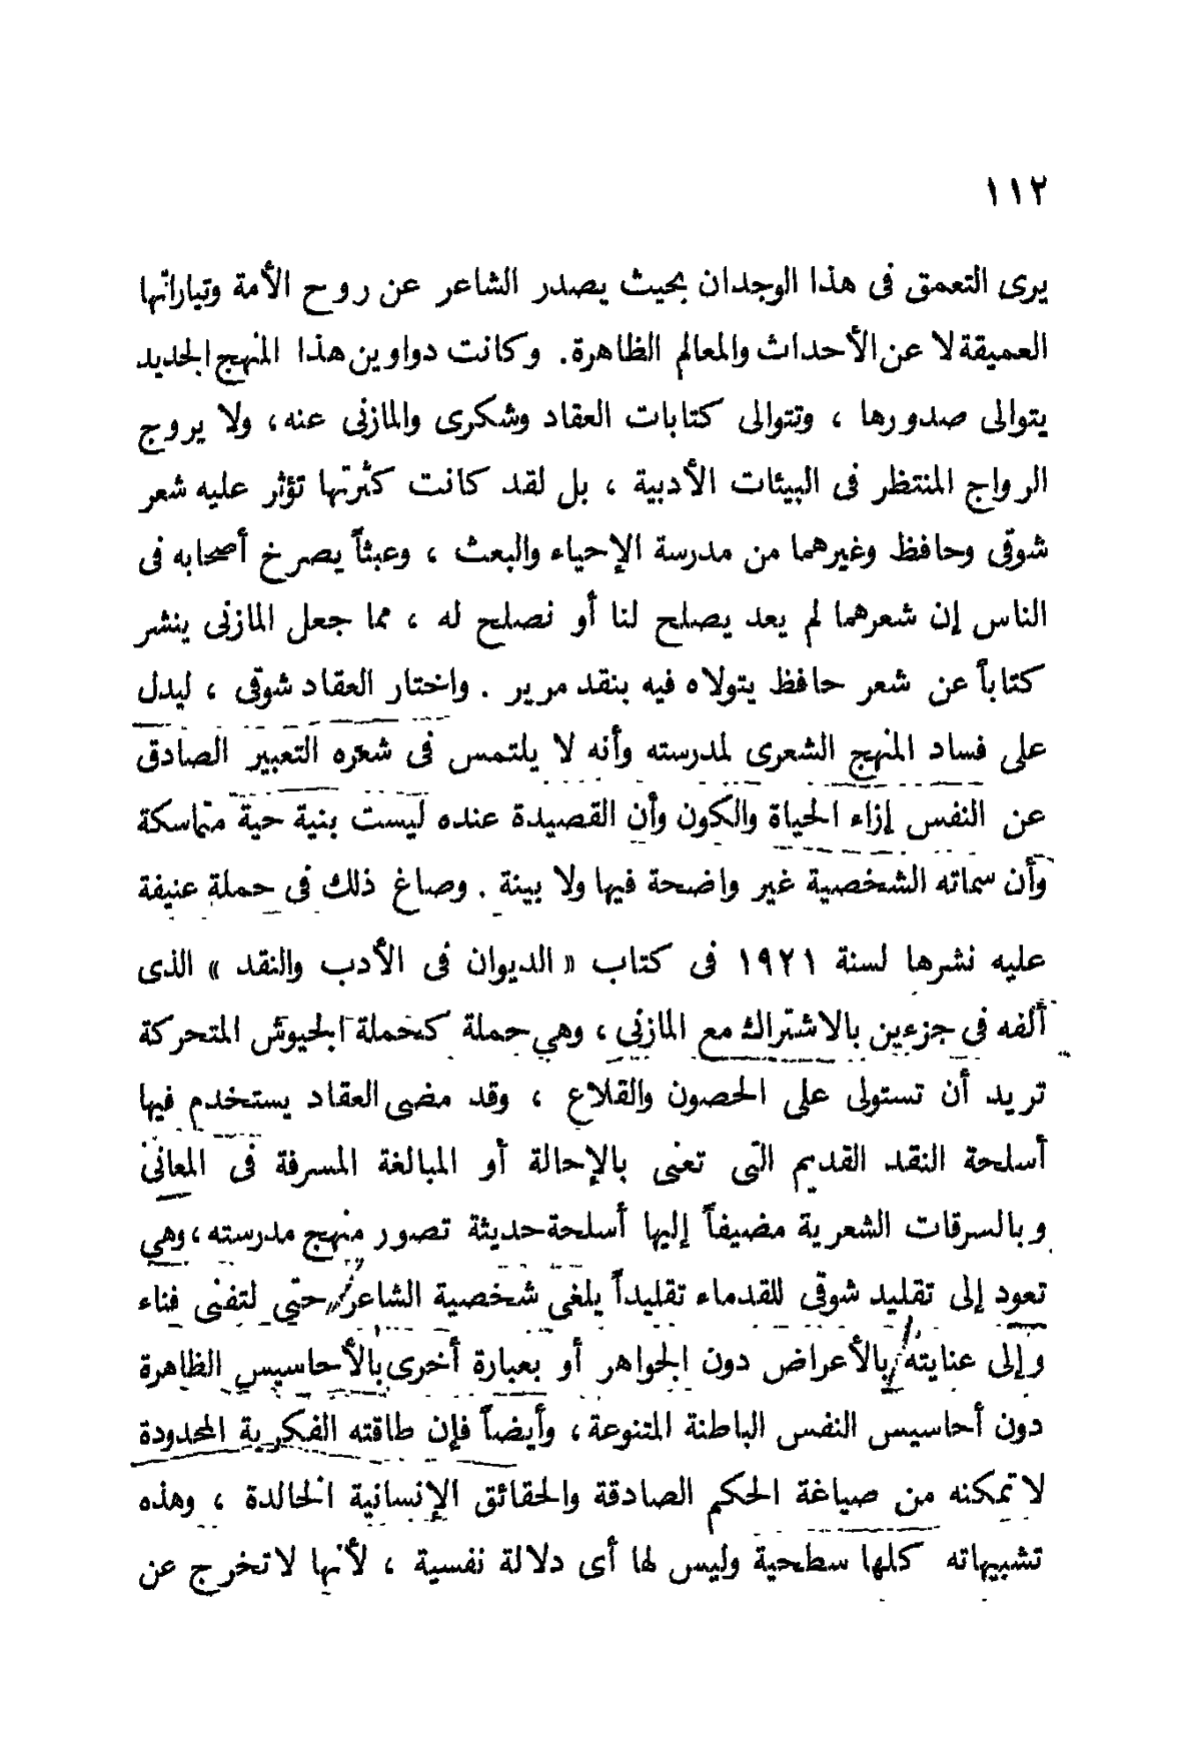 ١١٢
يرى التعمق فى هذا الوجدان بحيث يصدر الشاعر عن روح الأمة وتياراتها
العميقة لا عن الأحداث والمعالم الظاهرة. وكانت دواوين هذا المنهج الجديد
يتوالى صدورها ، وتتوالى كتابات العقاد وشكرى والمازنى عنه، ولا يروج
الرواج المنتظر فى البيئات الأدبية ، بل لقد كانت كثرتها تؤثر عليه شعر
شوقى وحافظ وغيرهما من مدرسة الإحياء والبعث ، وعبثاً يصرخ أصحابه فى
الناس إن شعرهما لم يعد يصلح لنا أو نصلح له ، مما جعل المازنى ينشر
كتاباً عن شعر حافظ يتولاه فيه بنقد مرير . واختار العقاد شوقى ، ليدل
على فساد المنهج الشعرى لمدرسته وأنه لا يلتمس فى شعره التعبير الصادق
عن النفس إزاء الحياة والكون وأن القصيدة عنده ليست بنية حية متماسكة
وأن سماته الشخصية غير واضحة فيها ولا بينة . وصاغ ذلك فى حملة عنيفة
عليه نشرها لسنة ١٩٢١ فى كتاب « الديوان فى الأدب والنقد » الذى
ألفه فى جزءين بالاشتراك مع المازنى ، وهي حملة كحملة الجيوش المتحركة
تريد أن تستولى على الحصون والقلاع ، وقد مضى العقاد يستخدم فيها
أسلحة النقد القديم التى تعنى بالإحالة أو المبالغة المسرفة فى المعانى
وبالسرقات الشعرية مضيفاً إليها أسلحة حديثة تصور منهج مدرسته ، وهي
تعود إلى تقليد شوقى للقدماء تقليداً يلغى شخصية الشاعر حتى لتفنى فناء
وإلى عنايته بالأعراض دون الجواهر أو بعبارة أخرى بالأحاسيس الظاهرة
دون أحاسيس النفس الباطنة المتنوعة ، وأيضاً فإن طاقته الفكرية المحدودة
لا تمكنه من صياغة الحكم الصادقة والحقائق الإنسانية الخالدة ، وهذه
تشبيهاته كلها سطحية وليس لها أى دلالة نفسية ، لأنها لا تخرج عن